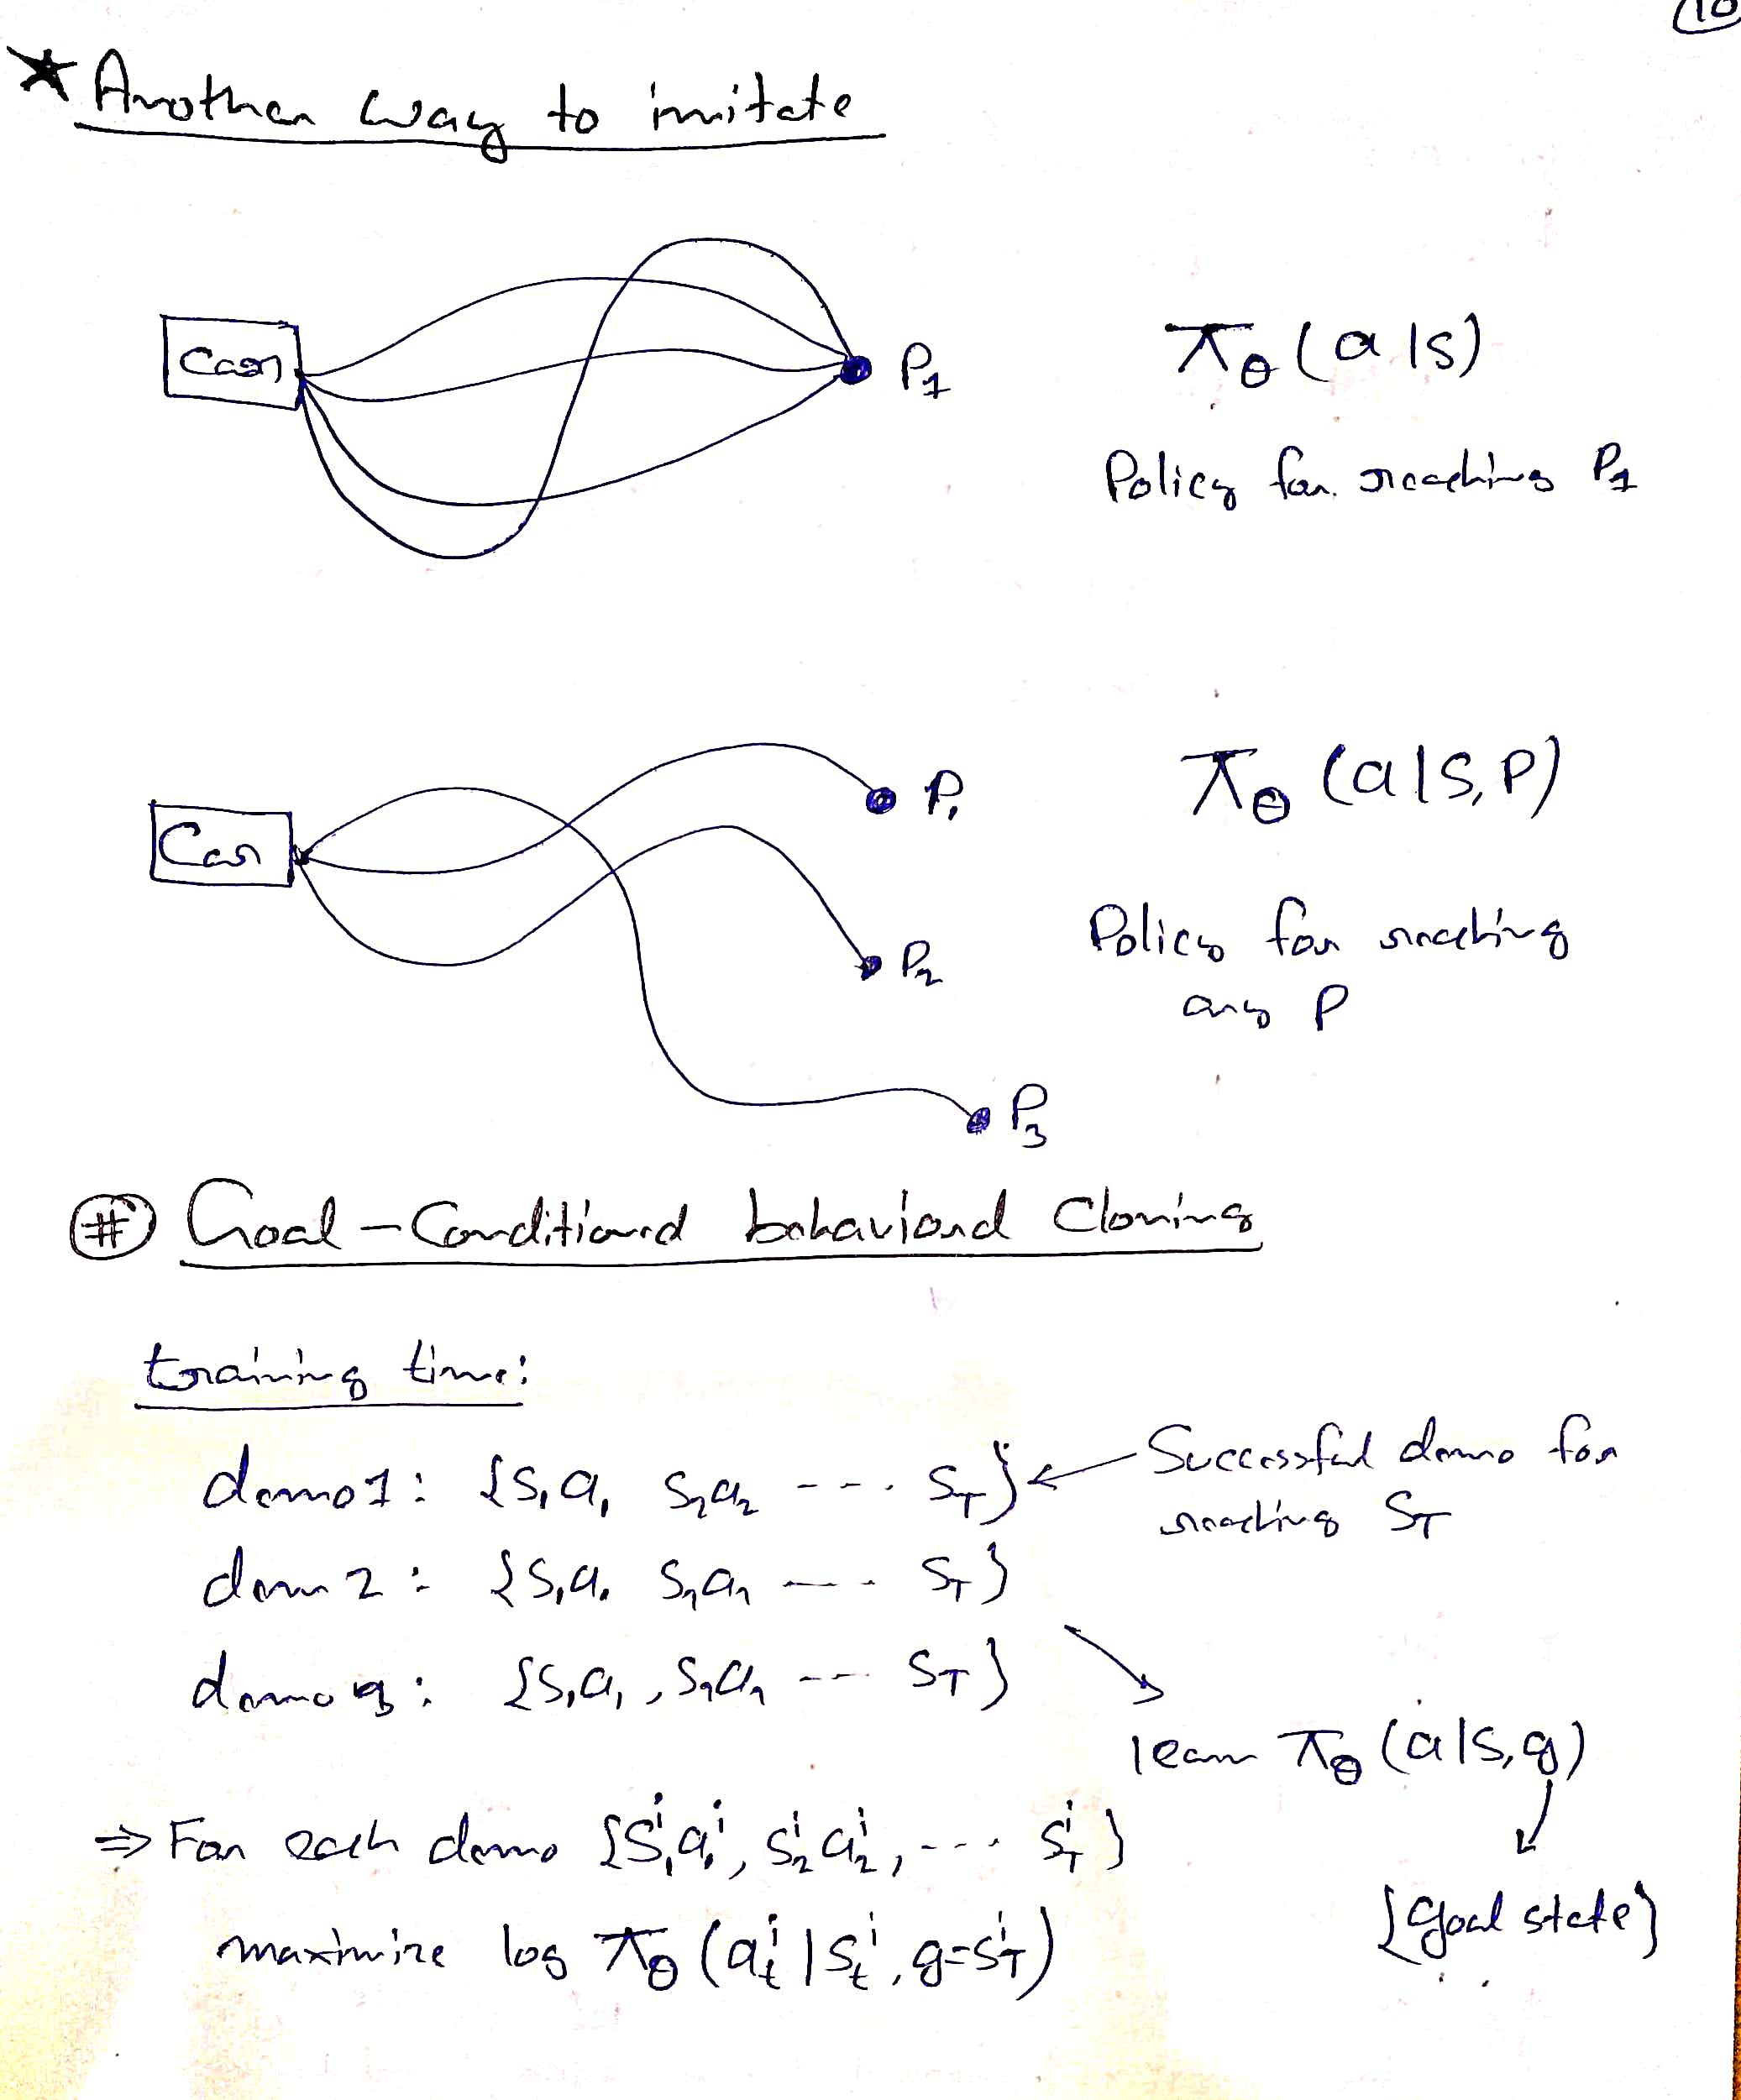 10
* Another way to imitate
Car
P₁
π_θ(a|s)
Policy for reaching P₁
Car
P₁
π_θ(a|s,P)
P₂
Policy for reaching
any P
P₃
# Goal-Conditioned behavioral Cloning
training time:
demo1: {s₁a₁ s₂a₂ ---. s_T} ← Successful demo for
reaching S_T
dem 2: {s₁a₁ s₂a₂ --- s_T}
demo 3: {s₁a₁, s₂a₂ --- s_T}
learn π_θ(a|s,g)
{goal state}
⇒ For each demo {s₁ⁱa₁ⁱ, s₂ⁱa₂ⁱ, --- s_Tⁱ}
maximize log π_θ(a_tⁱ|s_tⁱ, g=s_Tⁱ)